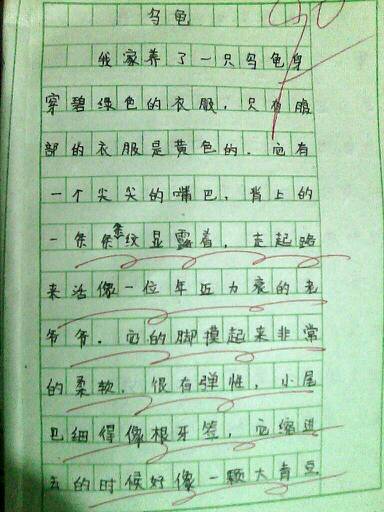 乌龟
我家养了一只乌龟身
穿碧绿色的衣服，只有腹
部的衣服是黄色的．它有
一个尖尖的嘴巴，背上的
一条条条纹显露着，走起路
来活像一位年迈力衰的老
爷爷．它的脚摸起来非常
的柔软，很有弹性，小尾
巴细得像根牙签，它缩进
去的时候好像一颗大青豆